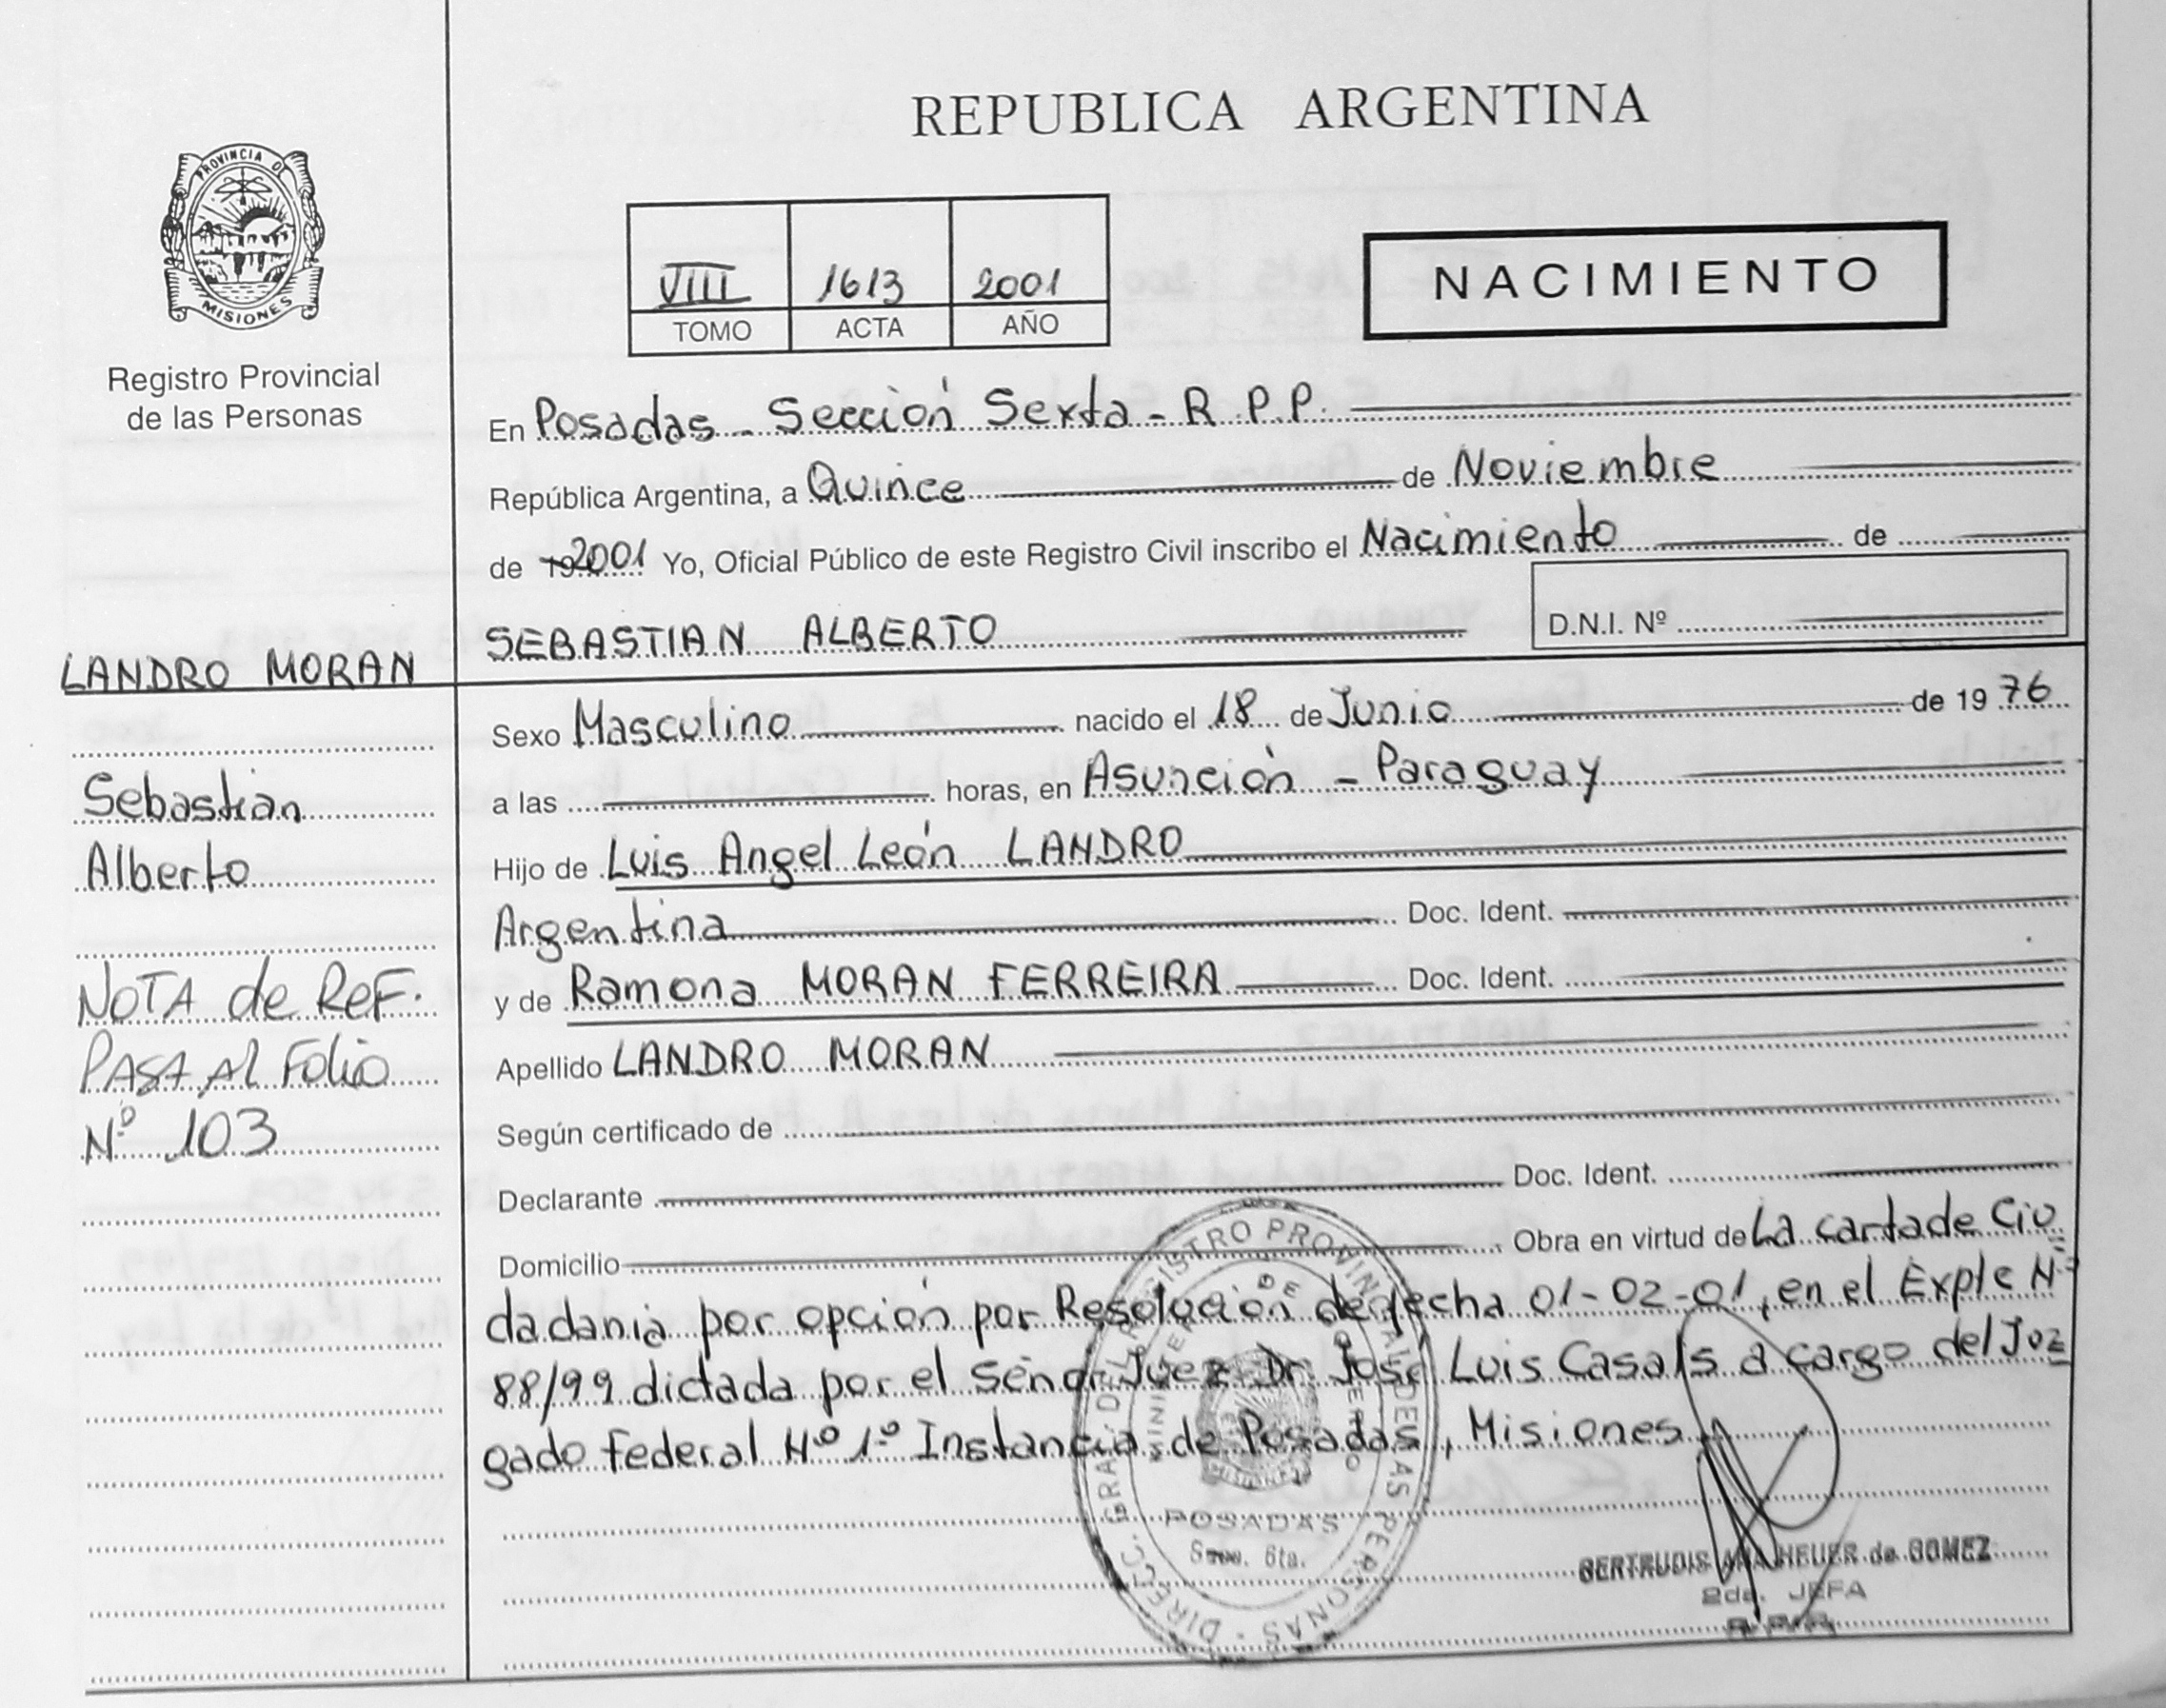 REPUBLICA ARGENTINA
PROVINCIA DE
MISIONES
Registro Provincial
de las Personas
VIII 1613 2001
TOMO ACTA AÑO
NACIMIENTO
En Posadas - Sección Sexta - R.P.P.
República Argentina, a Quince de Noviembre
de 19 2001 Yo, Oficial Público de este Registro Civil inscribo el Nacimiento de
SEBASTIAN ALBERTO D.N.I. Nº
LANDRO MORAN
Sebastian
Alberto
NOTA de REF.
PASA Al Folio
Nº 103
Sexo Masculino nacido el 18 de Junio de 19 76
a las horas, en Asunción - Paraguay
Hijo de Luis Angel León LANDRO
Argentina Doc. Ident.
y de Ramona MORAN FERREIRA Doc. Ident.
Apellido LANDRO MORAN
Según certificado de
Declarante Doc. Ident.
Domicilio Obra en virtud de La carta de Ciu
dadania por opción por Resolución de fecha 01-02-01, en el Expte Nº
88/99 dictada por el Señor Juez Dr José Luis Casals a cargo del Juz
gado Federal Nº 1º Instancia de Posadas, Misiones
DIRECC. GRAL. DEL REGISTRO PROVINCIAL DE LAS PERSONAS
MINISTERIO DE GOBIERNO
MISIONES
POSADAS
Secc. 6ta.
GERTRUDIS ANA HEUER de GOMEZ
2da. JEFA